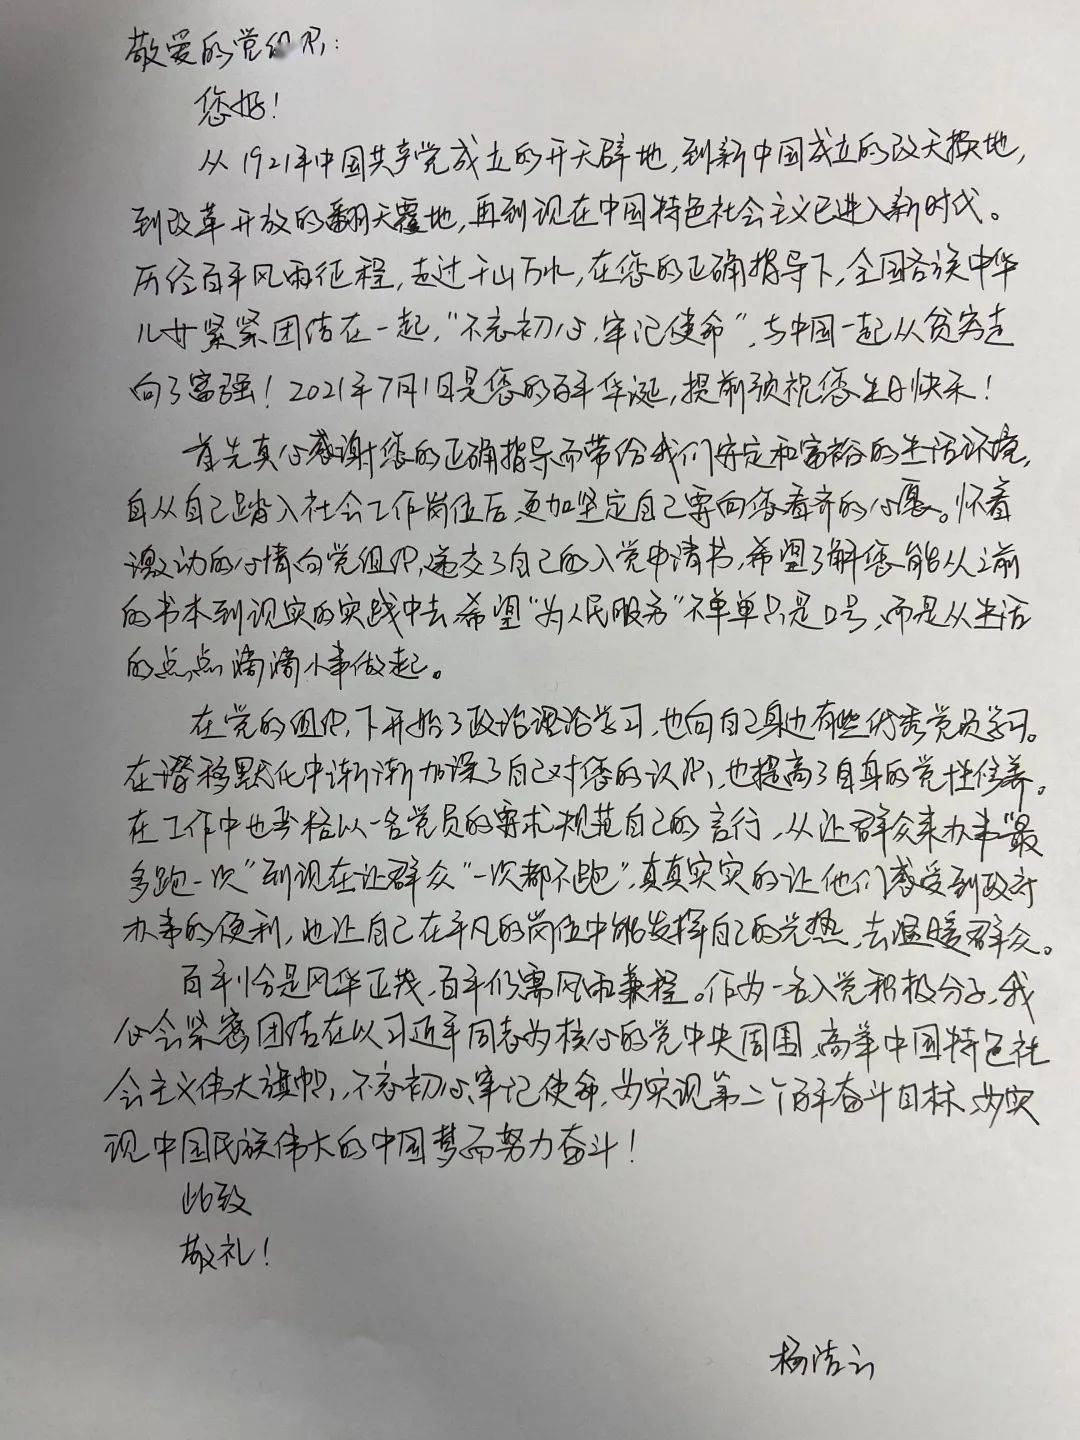 敬爱的党组织：
您好！
从1921年中国共产党成立的开天辟地，到新中国成立的改天换地，
到改革开放的翻天覆地，再到现在中国特色社会主义已进入新时代。
历经百年风雨征程，走过千山万水，在您的正确指导下，全国各族中华
儿女紧紧团结在一起，“不忘初心，牢记使命”，与中国一起从贫穷走
向了富强！2021年7月1日是您的百年华诞，提前预祝您生日快乐！
首先真心感谢您的正确指导而带给我们安定和富裕的生活环境，
自从自己踏入社会工作岗位后，更加坚定自己要向您看齐的心愿。怀着
激动的心情向党组织，递交了自己的入党申请书，希望了解您能从之前
的书本到现实的实践中去，希望“为人民服务”不单单只是口号，而是从生活
的点点滴滴小事做起。
在党的组织下开始了政治理论学习，也向自己身边有些优秀党员学习。
在潜移默化中渐渐加深了自己对您的认识，也提高了自身的党性修养。
在工作中也严格以一名党员的要求规范自己的言行，从让群众来办事“最
多跑一次”到现在让群众“一次都不跑”，真真实实的让他们感受到政府
办事的便利，也让自己在平凡的岗位中能发挥自己的光热，去温暖群众。
百年恰是风华正茂，百年仍需风雨兼程。作为一名入党积极分子，我
会紧密团结在以习近平同志为核心的党中央周围，高举中国特色社
会主义伟大旗帜，不忘初心，牢记使命，为实现第二个百年奋斗目标、为实
现中国民族伟大的中国梦而努力奋斗！
此致
敬礼！
杨洁云